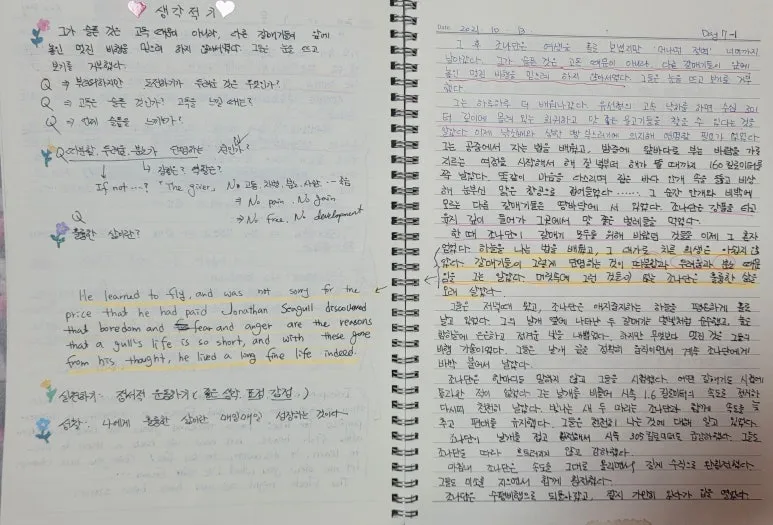 생각적기
그가 슬픈 것은 고독 때문이 아니라, 다른 갈매기들이 앞에
놓인 멋진 비행을 믿으려 하지 않아서였다. 그들은 눈을 뜨고
보기를 거부했다.
Q ⇒ 부러워하지만 도전하기가 두려운 것은 무엇인가?
Q ⇒ 고독은 슬픈 것인가? 고독을 느낄 때는?
Q ⇒ 언제 슬픔을 느끼는가?
Q 따분함, 두려움, 분노가 단명하는 원인?
If not...? "The giver, No 고통, 사랑
⇒ No pain. No Gain
⇒ No Free. No development
Q
훌륭한 삶이란?
He learned to fly, and was not sorry for the
price that he had paid Jonathan Seagull discovered
that boredom and fear and anger are the reasons
that a gull's life is so short, and with these gone
from his thought, he lived a long fine life indeed.
실천하기: 정서적 운동하기 (
성찰: 나에게 훌륭한 삶이란 매일매일 성장하는 것이다
Date 2021. 10. 13 Day 7-1
그 후 조나단은 여생을 홀로 보냈지만 '머나먼 절벽' 너머까지
날아갔다. 그가 슬픈 것은 고독 때문이 아니라, 다른 갈매기들이 앞에
놓인 멋진 비행을 믿으려 하지 않아서였다. 그들은 눈을 뜨고 보기를 거부
했다.
그는 하루하루 더 배워나갔다. 유선형의 고속 낙하를 하면 수심 3미
터 깊이에 몰려 있는 희귀하고 맛 좋은 물고기들을 찾을 수 있다는 것을
알았다. 이제 낚싯배와 상한 빵 부스러기에 의지해 연명할 필요가 없었다.
그는 공중에서 자는 법을 배웠고, 밤중에 앞바다로 부는 바람을 가로
지르는 여정을 시작해서 해가 질 녘부터 해가 뜰 때까지 160킬로미터를
쭉 날았다. 똑같이 마음을 다스리며 짙은 바다 안개 속을 뚫고 비상
해 눈부신 맑은 창공으로 접어들었다...... 그 순간 안개와 비밖에
모르는 다른 갈매기들은 땅바닥에 서 있었다. 조나단은 강풍을 타고
육지 깊이 들어가 그곳에서 맛 좋은 벌레들을 먹었다.
한 때 조나단이 갈매기 모두를 위해 바랐던 것들을 이제 그 혼자
얻었다. 하늘을 나는 법을 배웠고, 그 대가로 치른 희생은 아쉽지 않
았다. 갈매기들이 그렇게 단명하는 것이 따분함과 두려움과 분노 때문
임을 그는 알았다. 머릿속에 그런 것들이 없는 조나단은 훌륭한 삶을
오래 살았다.
그들은 저녁때 왔고, 조나단은 애지중지하는 하늘을 평온하게 홀로
날고 있었다. 그의 날개 옆에 나타난 두 갈매기는 별빛처럼 순수했고, 높은
밤하늘에 은은하고 정겨운 빛을 내뿜었다. 하지만 무엇보다 멋진 것은 그들의
비행 기술이었다. 그들은 날개 끝을 정확히 움직이면서 계속 조나단에게
바싹 붙어서 날았다.
조나단은 한마디도 말하지 않고 그들을 시험했다. 어떤 갈매기도 시험에
통과한 적이 없었다. 그는 날개를 비틀어 시속 1.6킬로미터의 속도로
다시피 천천히 날았다. 빛나는 새 두 마리는 조나단과 함께 속도를 늦
추고 편대를 유지했다. 그들은 천천히 나는 것에 대해 알고 있었다.
조나단이 날개를 접고 회전해서 시속 305킬로미터로 급강하했다. 그들도
조나단을 따라 흐트러지지 않고 강하했다.
마침내 조나단은 속도를 그대로 올리면서 길게 수직으로 완만회전했다.
그들도 미소를 지으면서 함께 회전했다.
조나단은 수평비행으로 되돌아갔고,